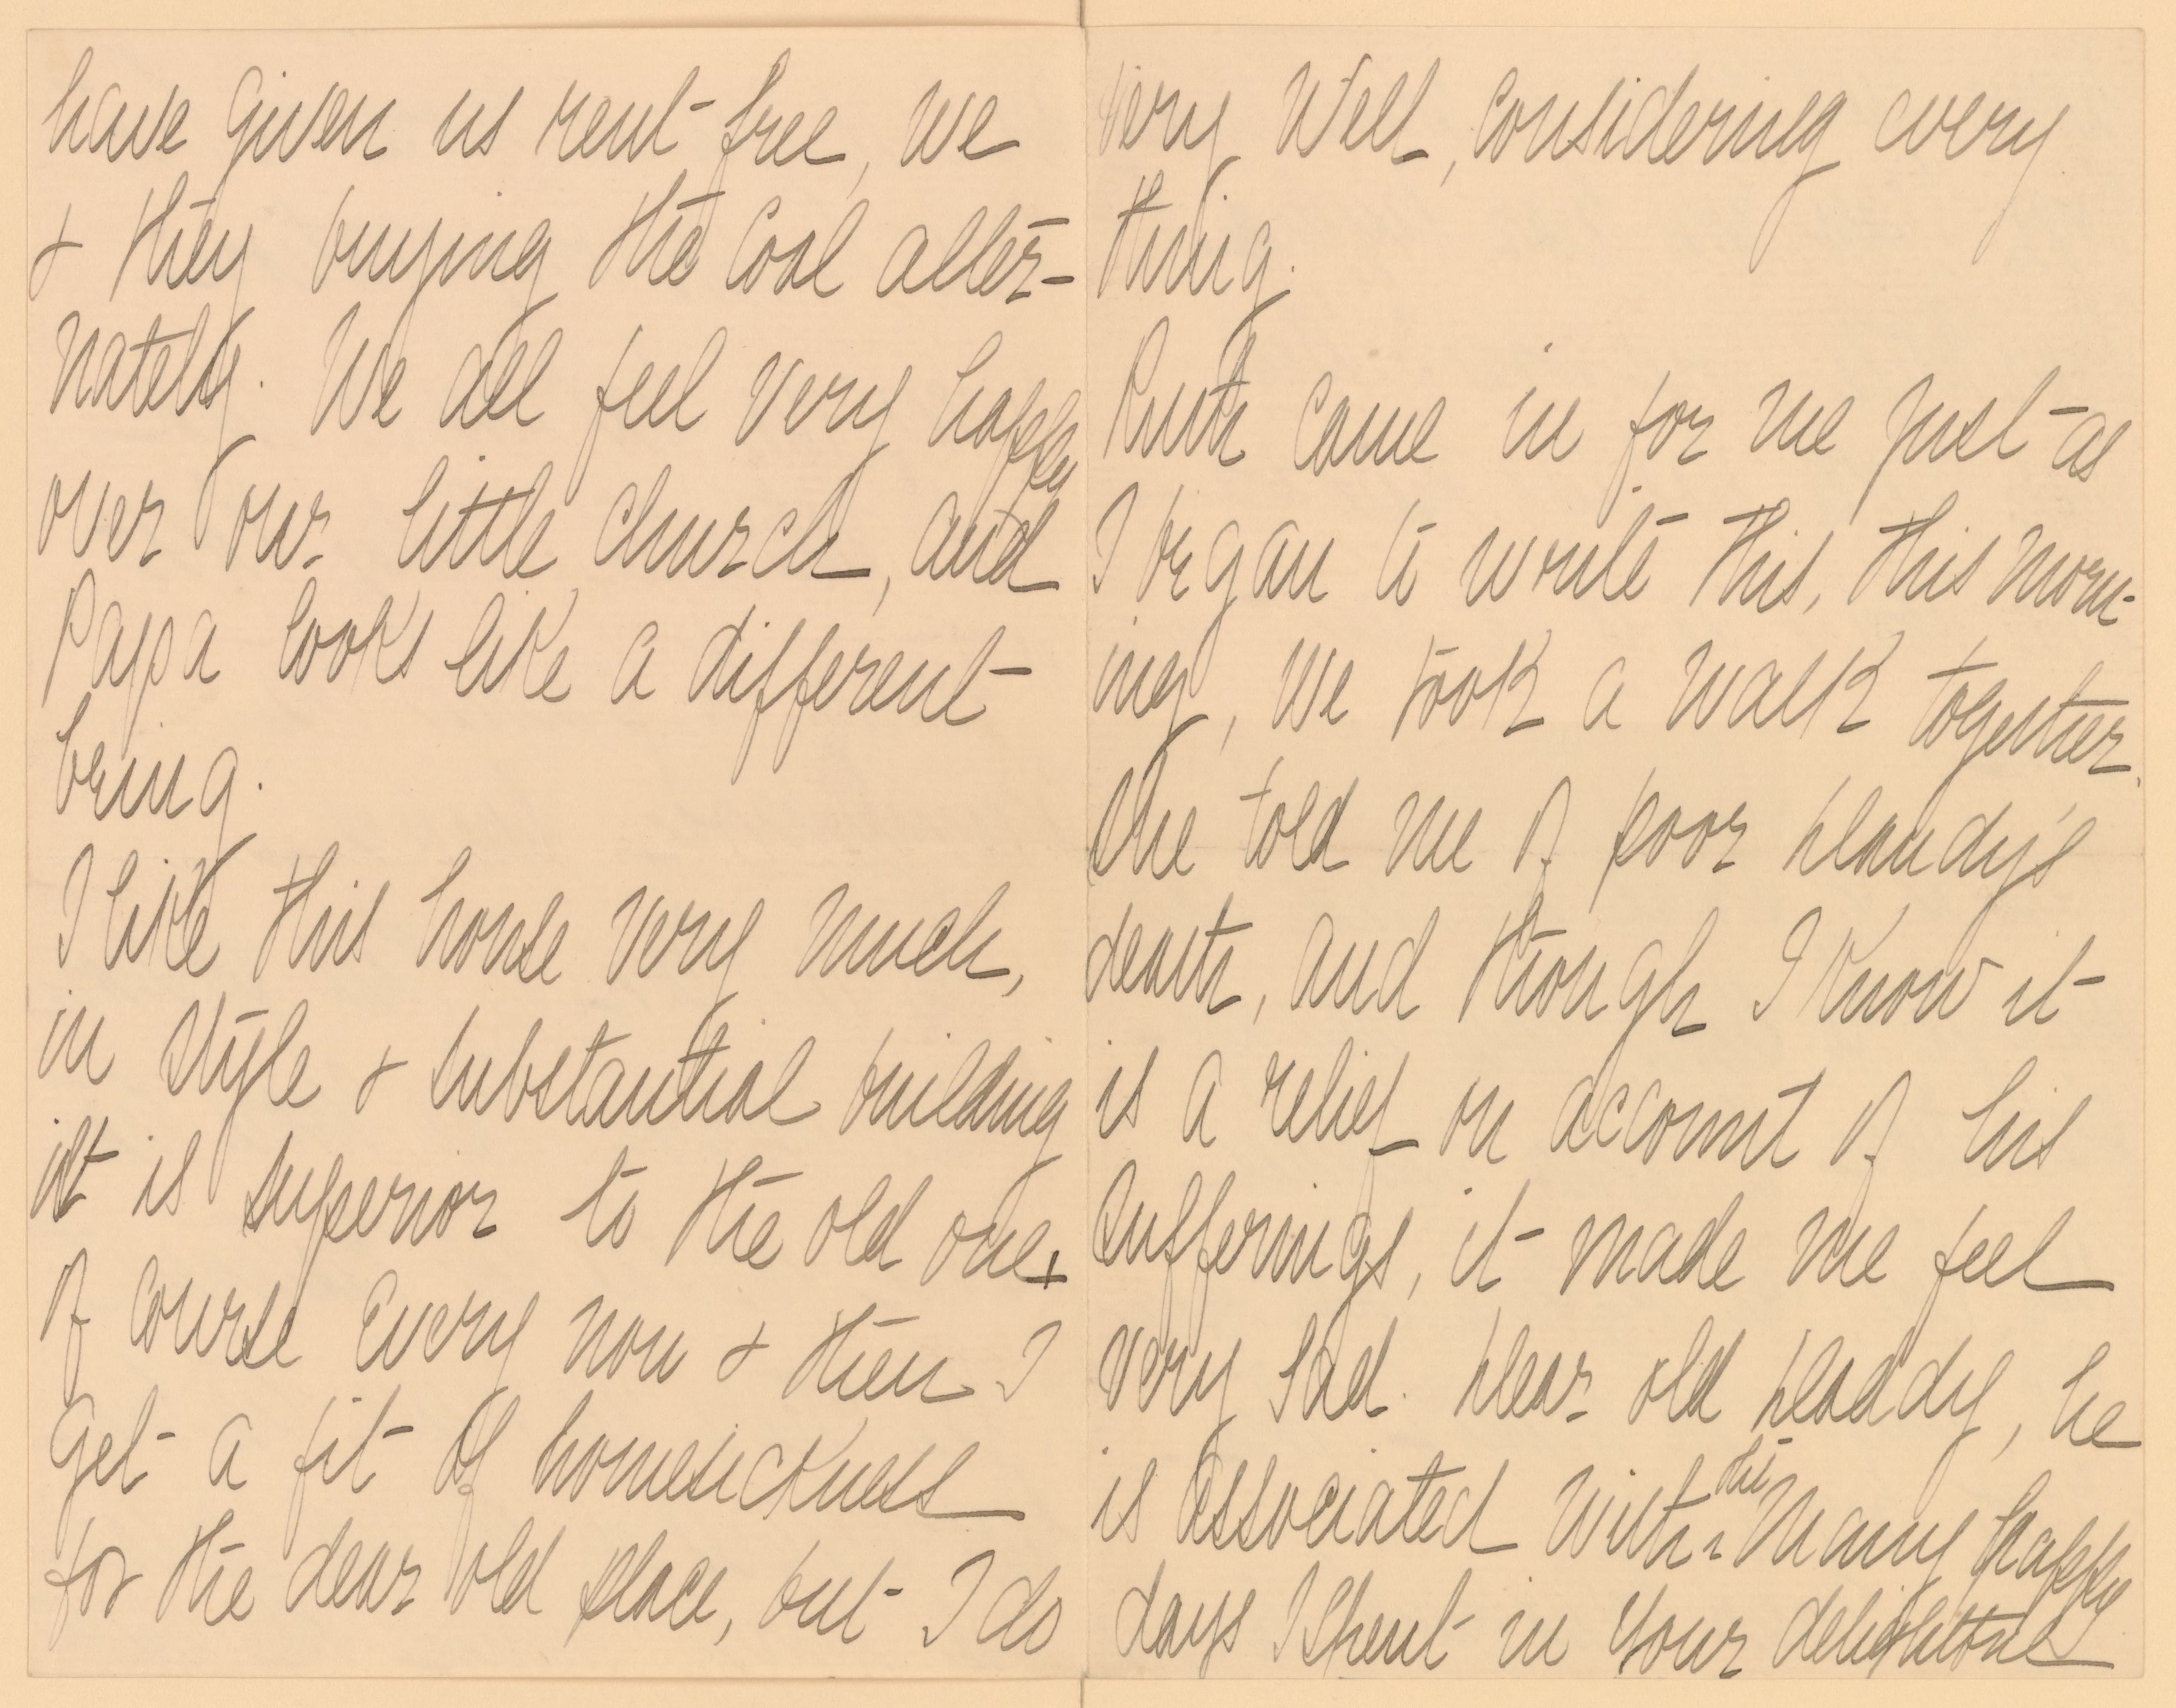 have given us rent free, we
& they buying the coal alter-
nately. We all feel very happy
over our little church, and
Papa looks like a different
being.
I like this house very much,
in style & substantial building
it is superior to the old one &
of course every now & then I
get a fit of homesickness
for the dear old place, but I do
very well, considering every
thing.
Ruth came in for me just as
I began to write this, this morn-
ing, we took a walk together.
She told me of poor
death, and though I know it
is a relief on account of his
sufferings, it made me feel
very sad. Dear old, he
the
is associated with many happy
days I spent in your